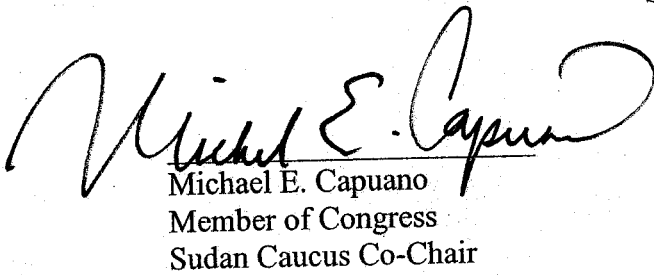 Michael E. Capuano
Michael E. Capuano
Member of Congress
Sudan Caucus Co-Chair